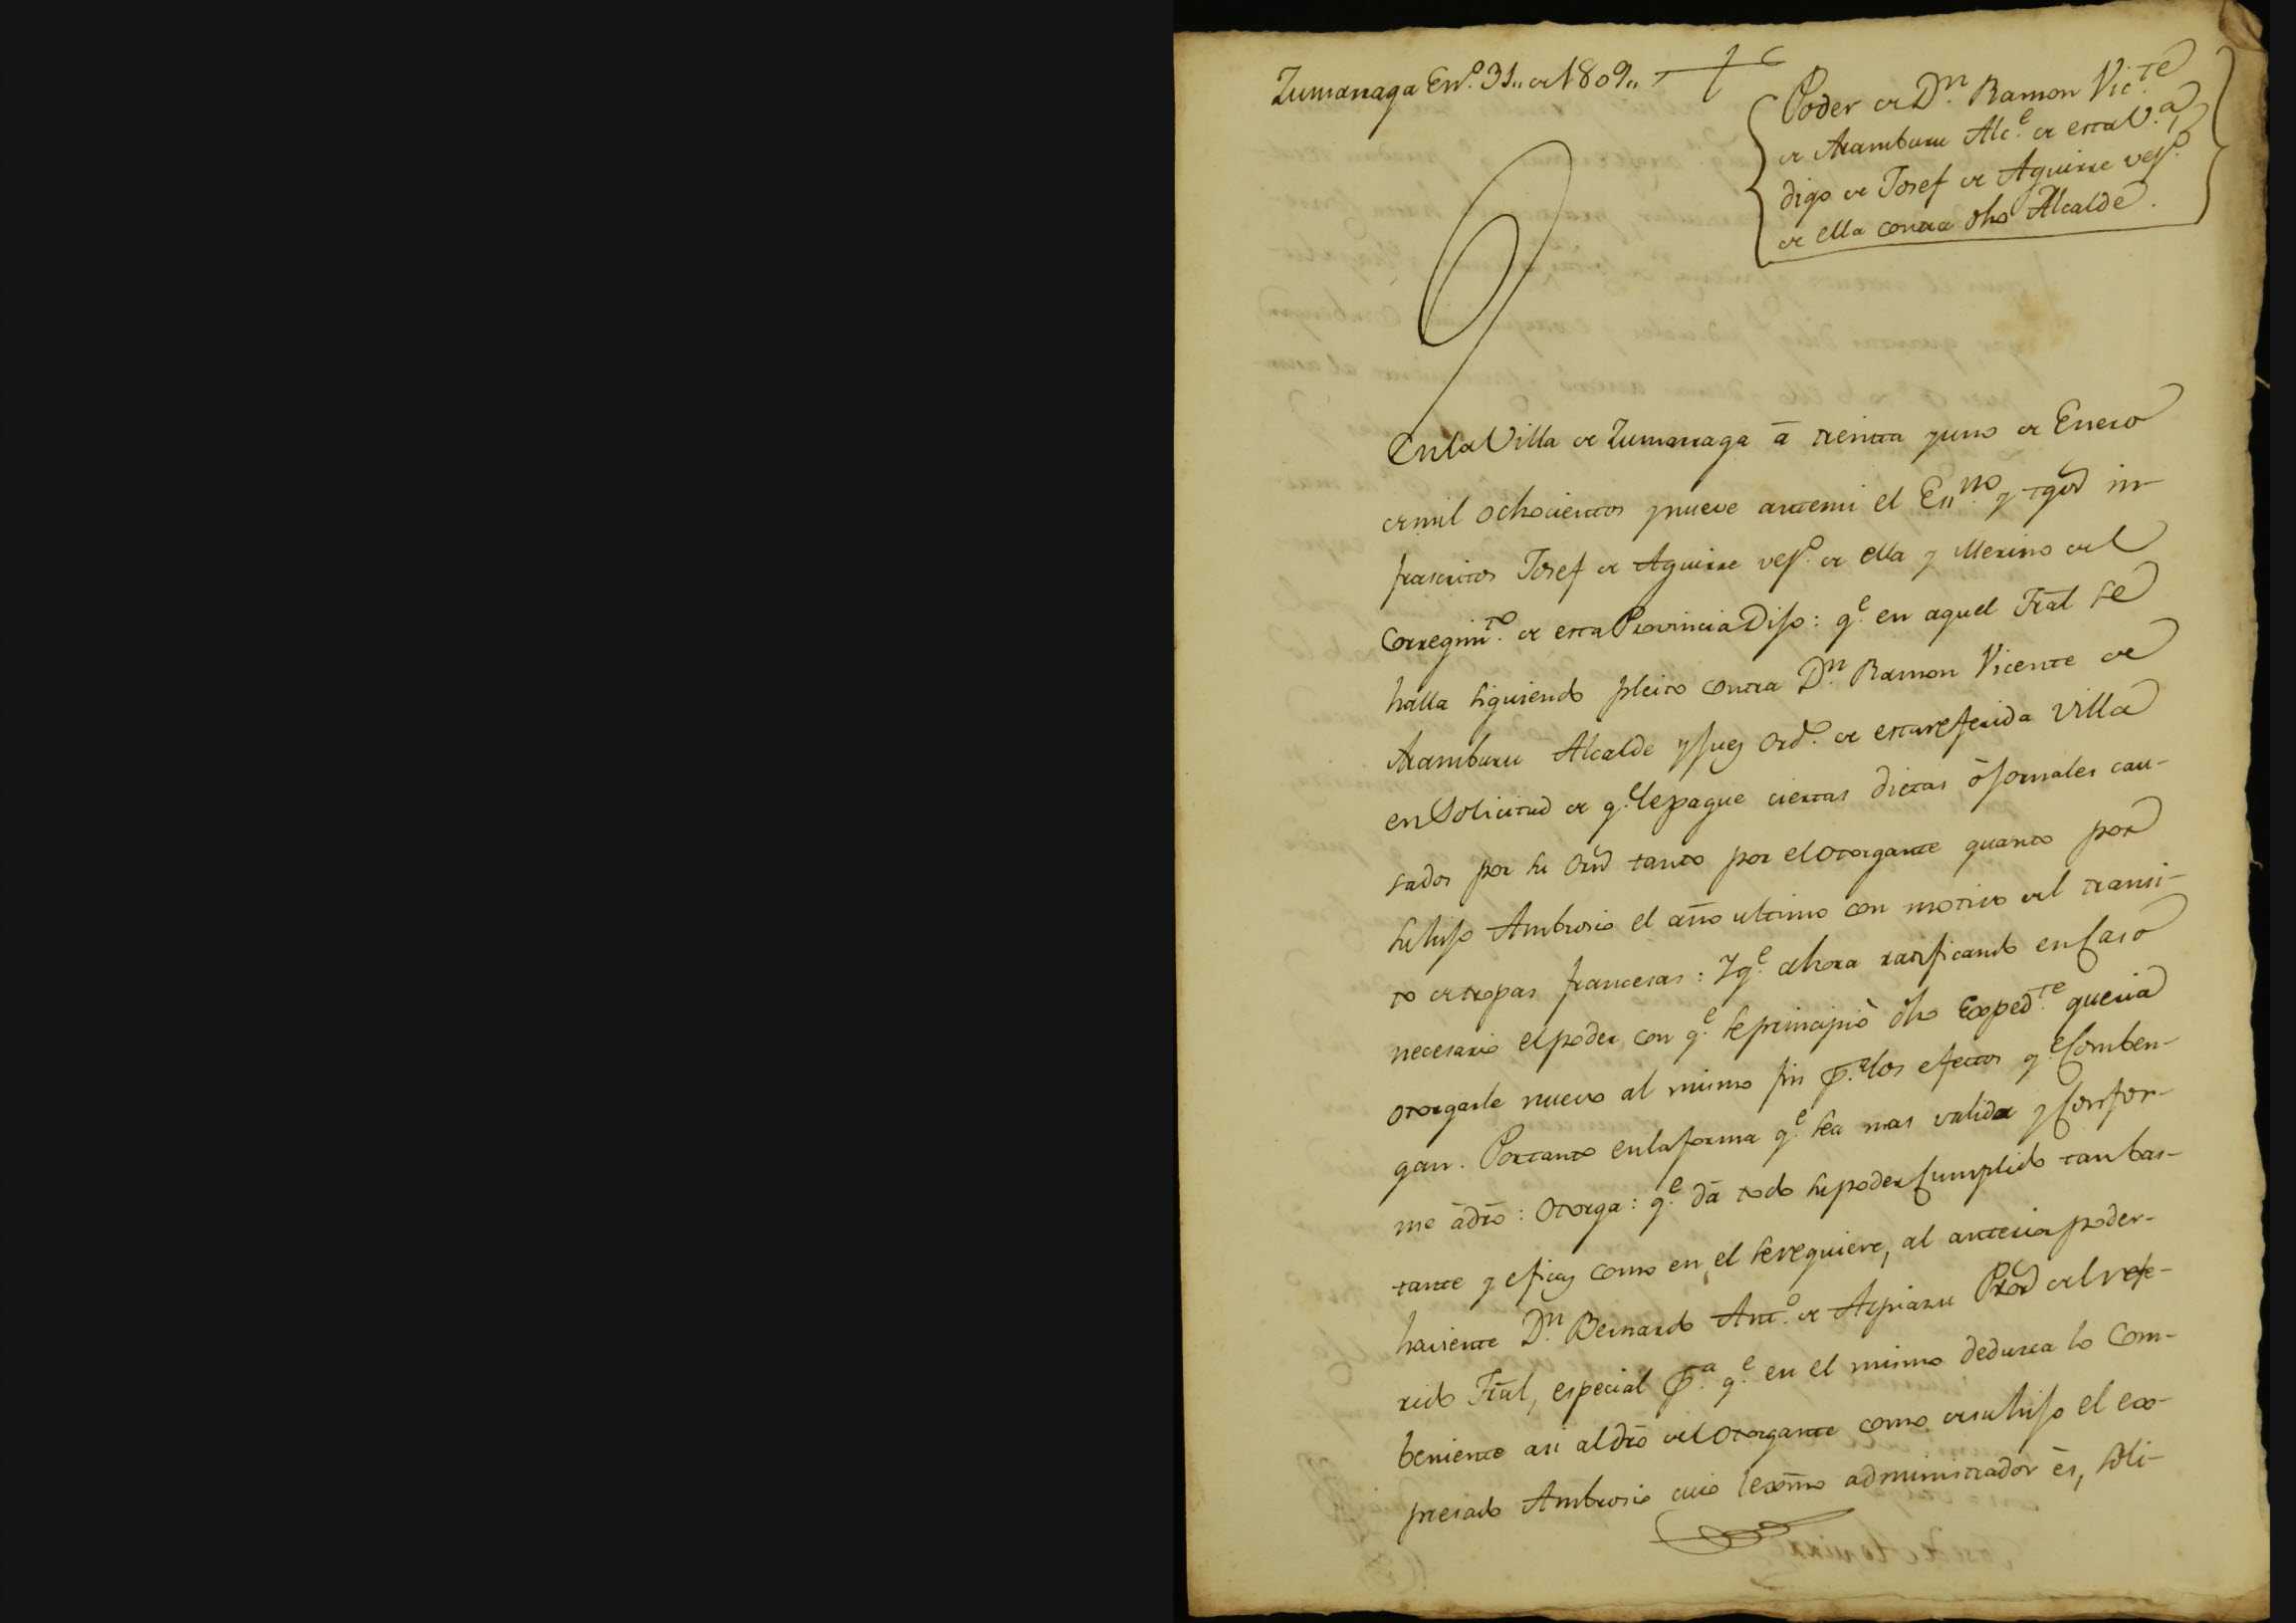 Zumarraga En.º 31,, de 1809,,
Poder de D.n Ramon Vic.te
de Aramburu Alc.e de esta V.a,
digo de Josef de Aguirre vez.º
de ella contra dho Alcalde.
En la Villa de Zumarraga á treinta y uno de Enero
de mil ochocientos y nueve ante mi el Es.no y tgōs in-
frascritos Josef de Aguirre vez.º de ella y Merino del
Corregim.to de esta Provincia Dijo: q.e en aquel Tral se
halla siguiendo pleito contra D.n Ramon Vicente de
Aramburu Alcalde y Juez ord.º de esta referida Villa
en Solicitud de q.e le pague ciertas dietas ó jornales cau-
sados por su orn̄ tanto por el otorgante quanto por
su hijo Ambrosio el año ultimo con motivo del transi-
to de tropas francesas: Y q.e ahora ratificando en Caso
necesario el poder con q.e se principió dho Exped.te queria
otorgarle nuevo al mismo fin p.a los efectos q.e Comben-
gan. Por tanto en la forma q.e sea mas valida y Confor-
me á dr̄o: Otorga: q.e dá todo su poder Cumplido tan bas-
tante y eficaz como en el se requiere, al anterior poder-
haviente D.n Bernardo Ant.º de Azpiazu Pror̄ del refe-
rido Tral, especial p.a q.e en el mismo deduzca lo Com-
beniente asi al dr̄o del Otorgante como de su hijo el ex-
presado Ambrosio cuio lexmō administrador es, soli-